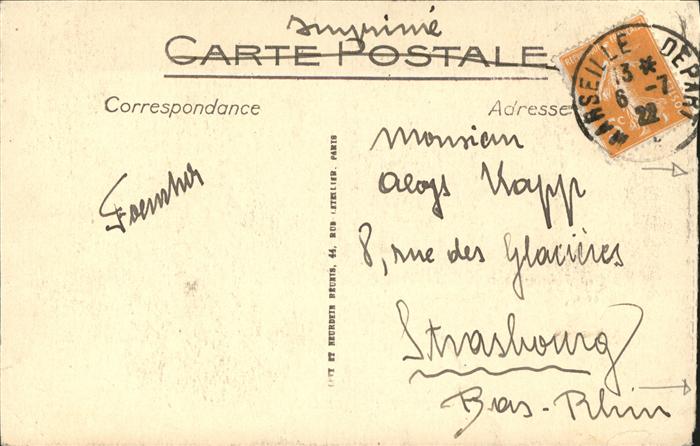 Imprimé
CARTE POSTALE
Correspondance
Adresse
MARSEILLE DEPART
13 *
6 -7
22
Monsieur
Aloys Kapp
8, rue des Glacières
Strasbourg
Bas-Rhin
LEVY ET NEURDEIN RÉUNIS, 44, RUE LETELLIER, PARIS